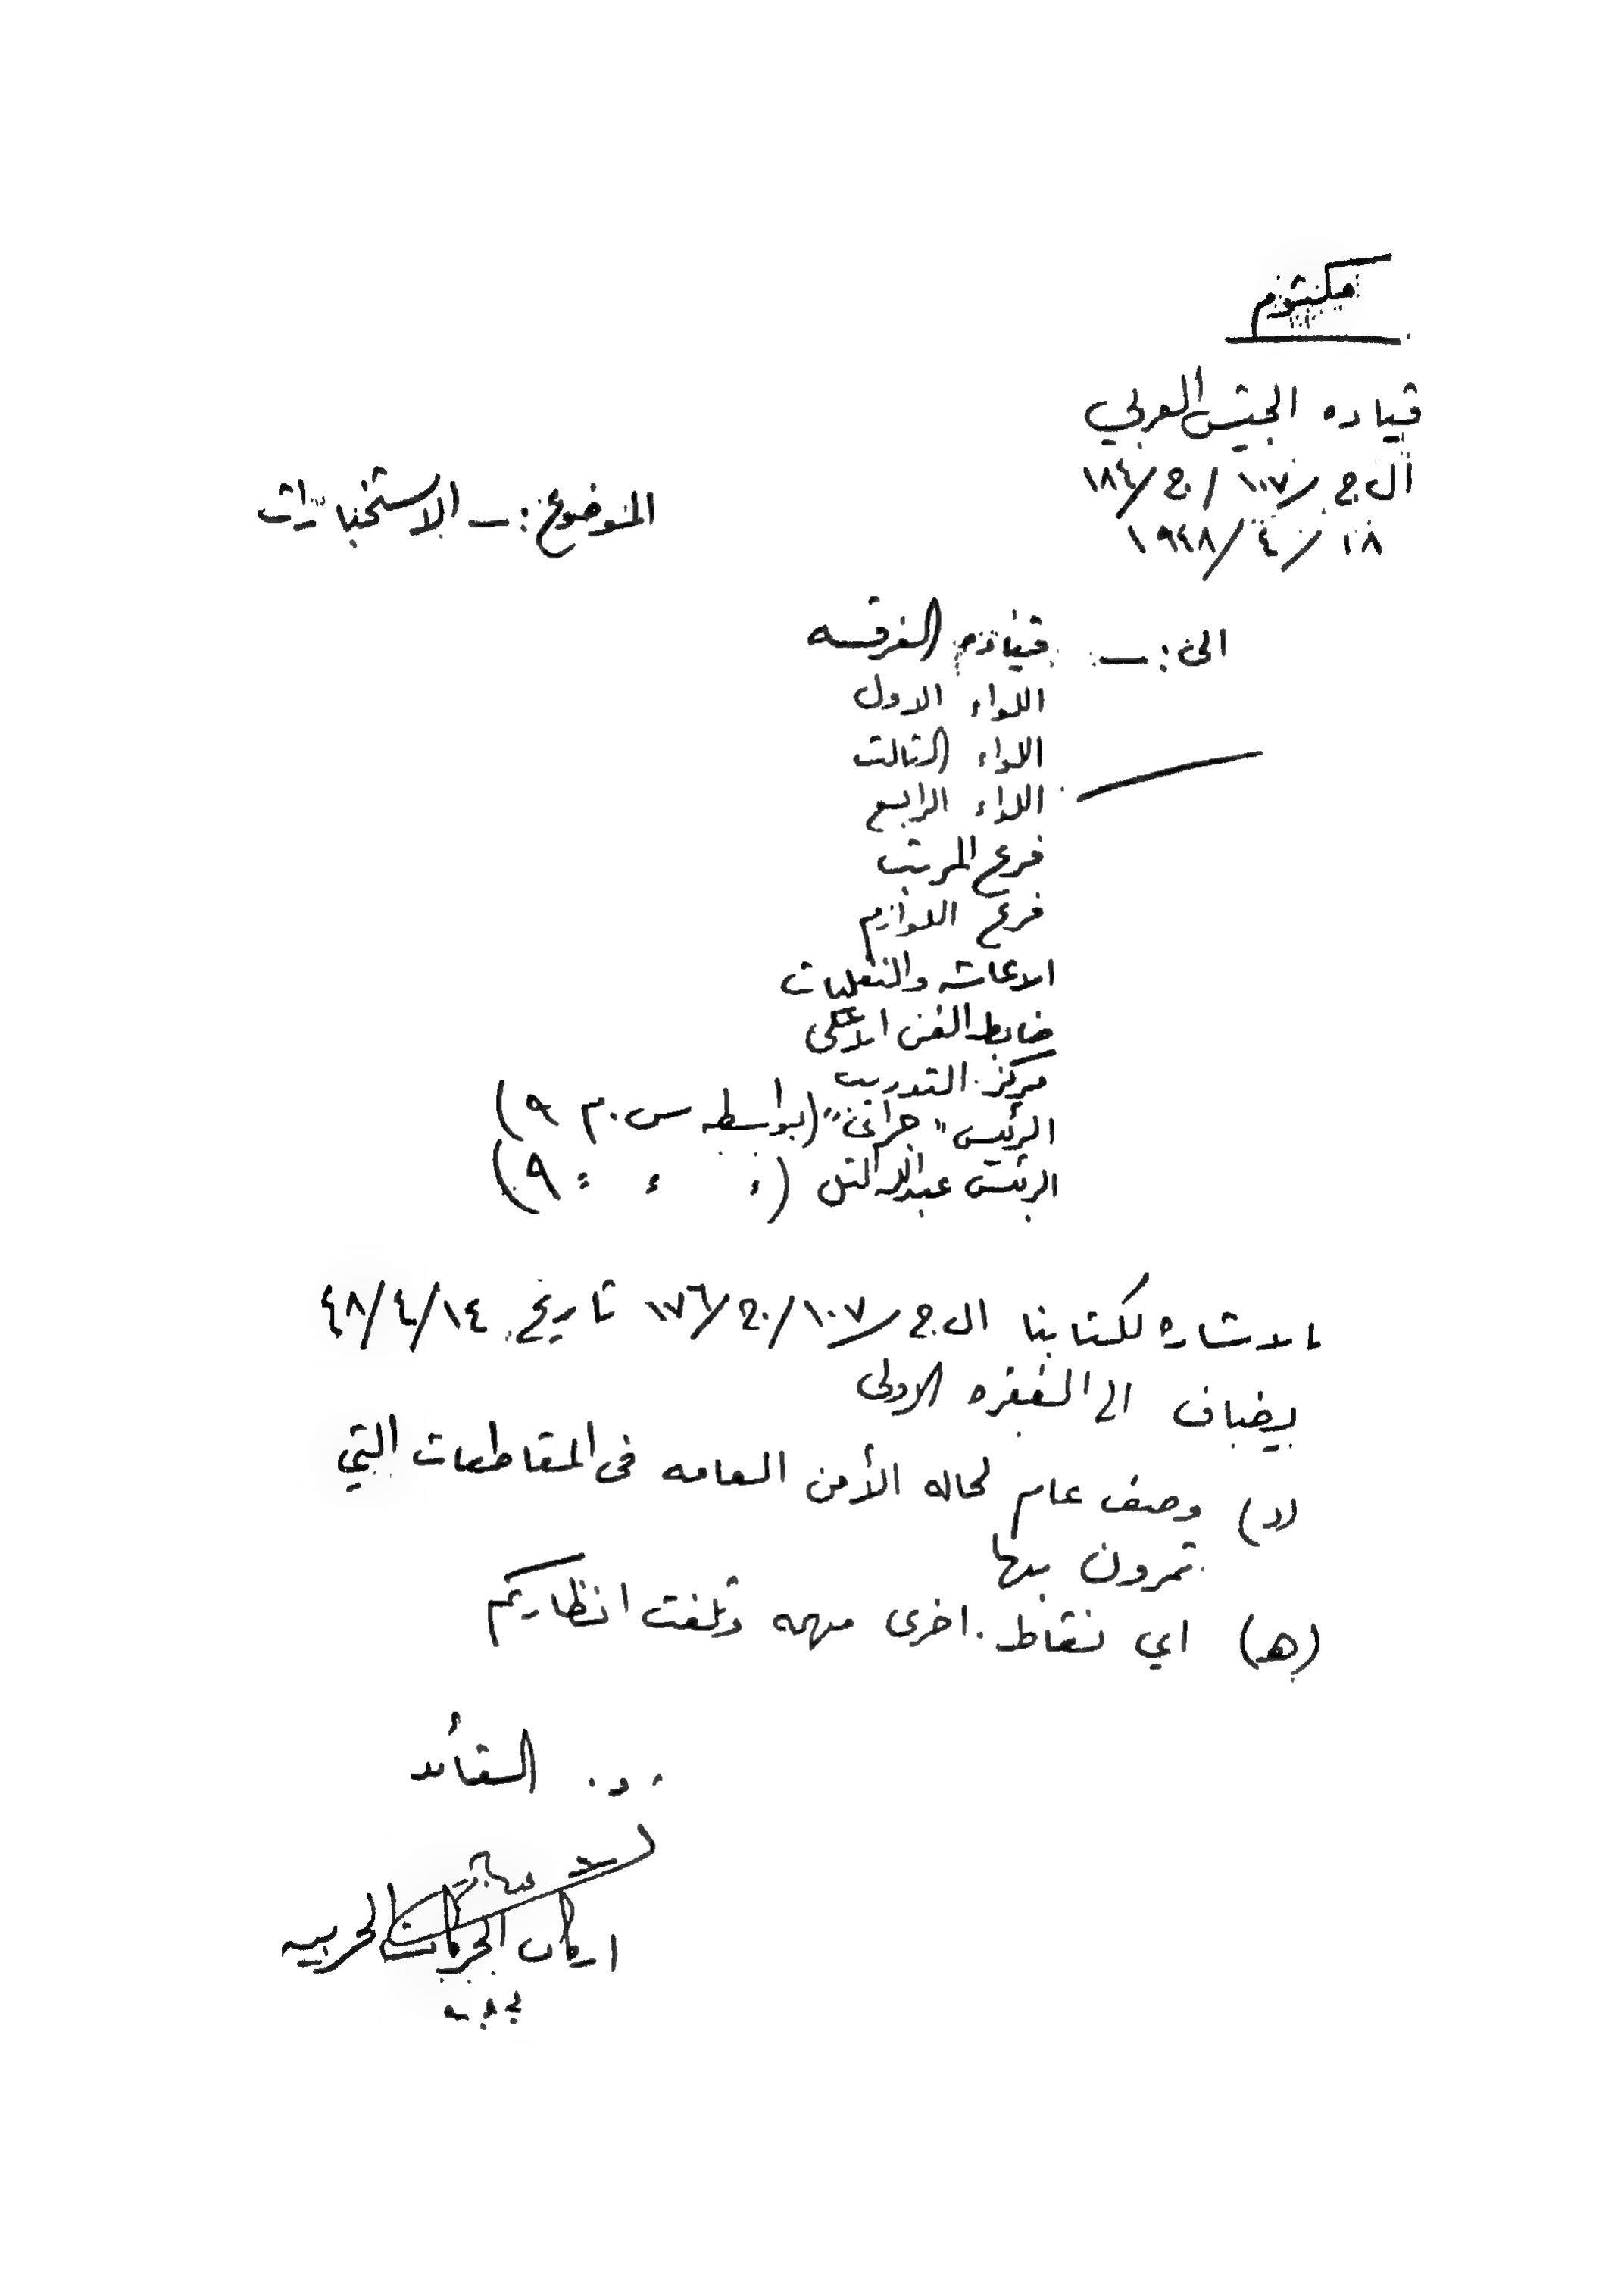 مكتوم
قياده الجيش العربي
ال ج/١٠٧/ج/١٨٤
١٨/٤/١٩٤٨
الموضوع :ــ الاستخبارات
الى :ــ قياده الفرقه
اللواء الاول
اللواء الثالث
اللواء الرابع
فرع المرتب
فرع اللوازم
الاعاشه والنقليات
ضابط الفن الاعلى
مركز التدريب
الرئيس " " (بواسطه س.م ٩)
الرئيس عبدالله التل (ء ء ء ٩)
بالاشاره لكتابنا ال ج/١٠٧/ج/١٧٦ تاريخ ٤٨/٤/١٤
يضاف الى الفقره الاولى
(د) وصف عام لحاله الأمن العامه في المقاطعات التي
تمرون بها
(هـ) اي نقاط اخرى مهمه وتلفت انظاركم
د. القائد
اركان الحركات الحربيه